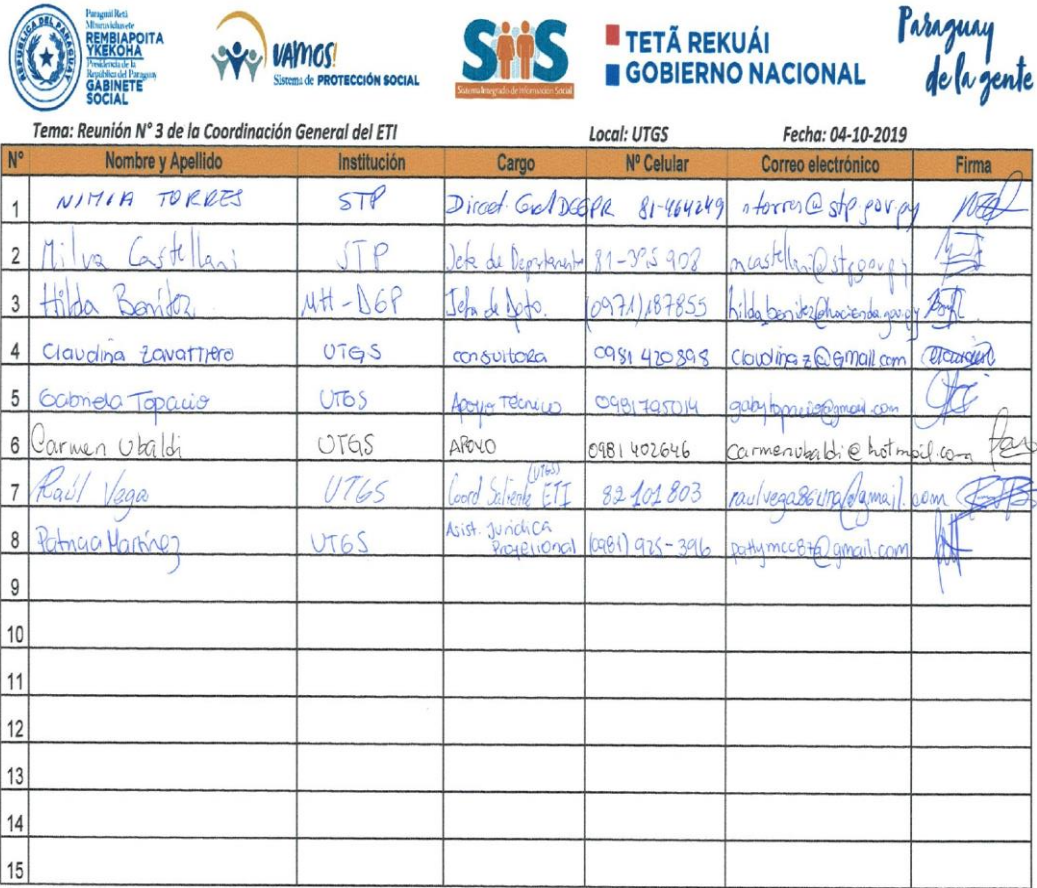 REPUBLICA DEL PARAGUAY
Paraguái Retã
REMBIAPOITA
YKEKOHA
Presidencia de la
República del Paraguay
GABINETE
SOCIAL
VAMOS!
Sistema de PROTECCIÓN SOCIAL
SIIS
Sistema Integrado de Información Social
TETÃ REKUÁI
GOBIERNO NACIONAL
Paraguay
de la gente
Tema: Reunión N° 3 de la Coordinación General del ETI Local: UTGS Fecha: 04-10-2019
Nº Nombre y Apellido Institución Cargo Nº Celular Correo electrónico Firma
1 NIMIA TORRES STP Direct. Gral DGGPR 81-464249 ntorres@stp.gov.py
2 Milva Castellani STP Jefa de Departamento mcastellani@stp.gov.py
3 Hilda Benítez MH-DGP Jefa de Dpto. (0971)187855 hildabenitez@hacienda.gov.py
4 Claudina Zavattiero UTGS consultora 0981 420898 claudinaz@gmail.com
5 Gabriela Topacio UTGS Apoyo Técnico 0981795014 gabytopacio@gmail.com
6 Carmen Ubaldi UTGS APOYO 0981 402646 carmenubaldi@hotmail.com
7 Raúl Vega UTGS Coord Saliente ETI (UTGS) 82 101 803 raulvega86una@gmail.com
8 Patricia Martínez UTGS Asist. Jurídica
Profesional (0981) 925-396 pattymcc87@gmail.com
9
10
11
12
13
14
15